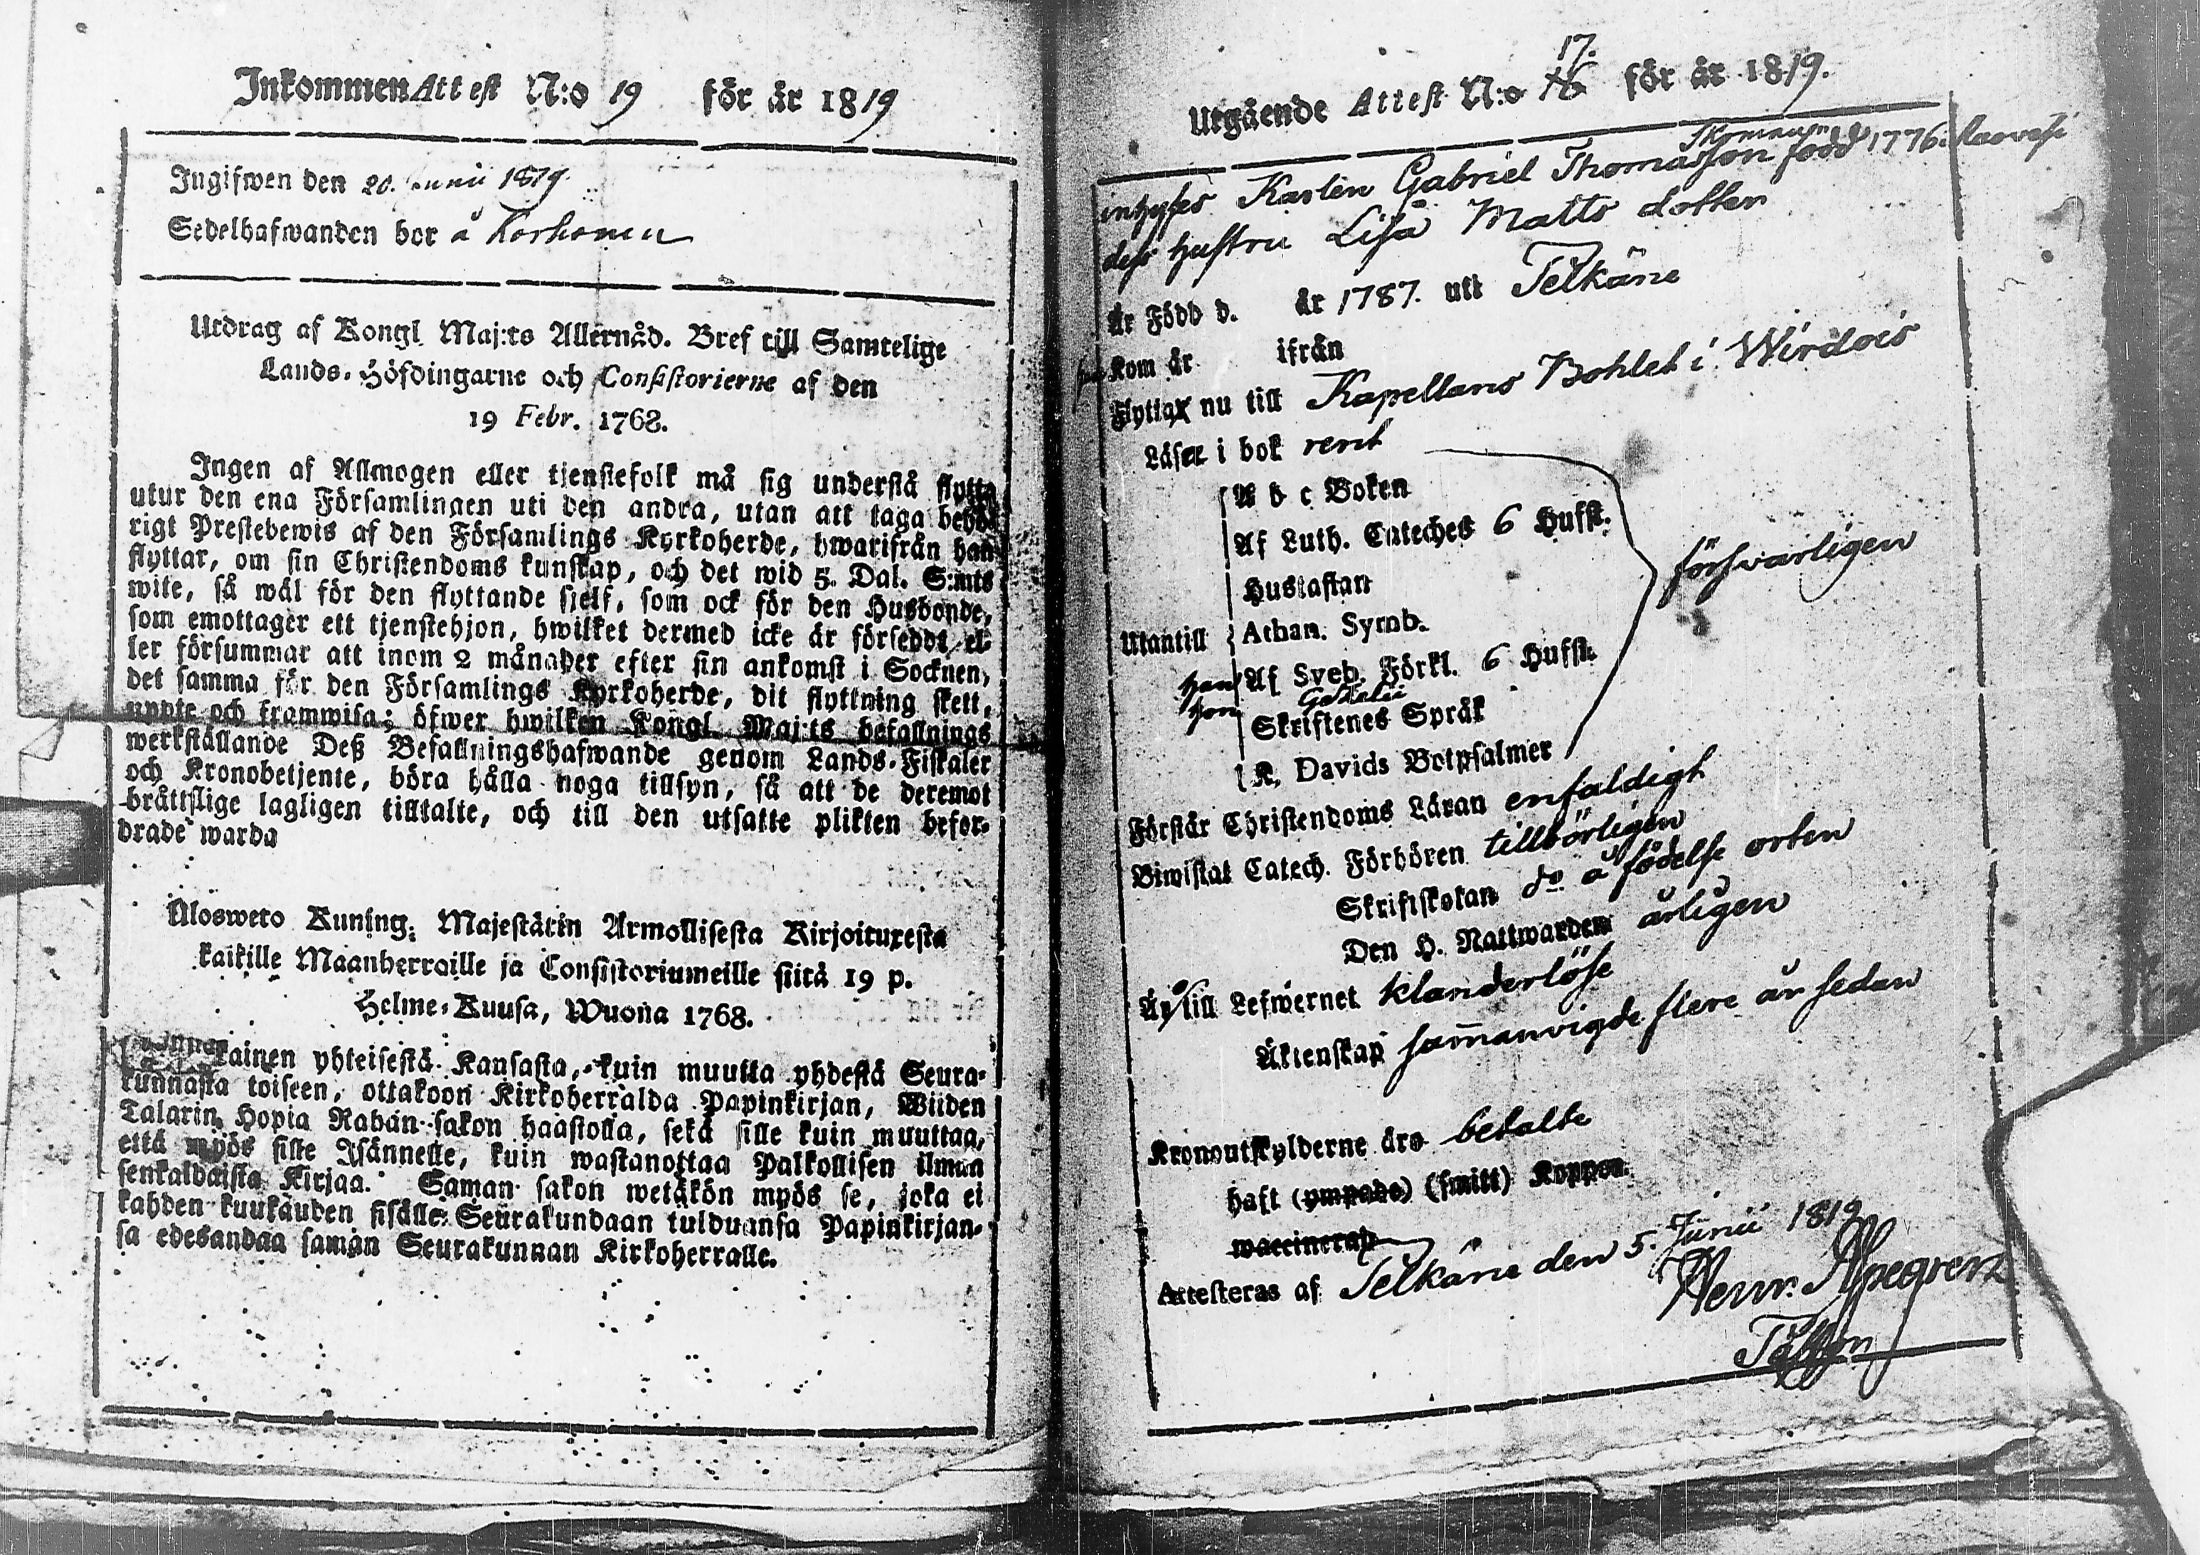 Inkommen Attest N:o 19 för år 1819
Ingifwen den 20. Junii 1819.
Sedelhafwanden bor å Korhonen
Utdrag af Kongl. Maj:ts Allernåd. Bref till Samtelige
Lands-Höfdingarne och Consistorierne af den
19 Febr. 1768.
Ingen af Allmogen eller tjenstefolk må sig understå flytta
utur den ena Församlingen uti den andra, utan att taga behö-
rigt Prestebewis af den Församlings Kyrkoherde, hwarifrån han
flyttar, om sin Christendoms kunskap, och det wid 5. Dal. S:mts
wite, så wäl för den flyttande sjelf, som ock för den Husbonde,
som emottager ett tjenstehjon, hwilket dermed icke är förseddt, el-
ler försummar att inom 2 månader efter sin ankomst i Socknen,
det samma för den Församlings Kyrkoherde, dit flyttning skett,
uppte och framwisa; öfwer hwilken Kongl. Maj:ts befallnings
werkställande Deß Befallningshafwande genom Lands-Fiskaler
och Kronobetjente, böra hålla noga tillsyn, så att de deremot
bråttslige lagligen tilltalte, och till den utsatte plikten befor-
drade warda
Ulosweto Kuning. Majestätin Armollisesta Kirjoituxesta
kaikille Maanherroille ja Consistoriumeille siitä 19 p.
Helme-Kuusa, Wuona 1768.
yhteisestä Kansasta, kuin muutta yhdestä Seura-
kunnasta toiseen, ottakoon Kirkoherralda Papinkirjan, Wiiden
Talarin Hopia Rahan sakon haastolla, sekä sille kuin muuttaa,
että myös sille Isännelle, kuin wastanottaa Palkollisen ilman
senkaldaista Kirjaa. Saman sakon wetäkön myös se, joka ei
kahden kuukauden sisälle Seurakundaan tulduansa Papinkirjan-
sa edesandaa saman Seurakunnan Kirkoherralle.
17.
Utgående Attest N:o 16 för år 1819.
inhyses Karlen Gabriel Thomasson född 1776
dess hustru Lisa Matts dotter
Är Född d. år 1787. uti Pelkäne
Kom år ifrån
Flyttar nu till Kapellans Bohlet i Wirdois
Läser i bok rent
A b c Boken
Af Luth. Cateches 6 Hufst.
Hustaflan
försvarligen
Utantill Athan. Symb.
han Af Sveb. Förkl. 6 Hufst.
hon
Skriftenes Språk
K. Davids Botpsalmer
Förstår Christendoms Läran enfaldigt
Biwistat Catech. Förhören tillbörligen
Skriftskolan do å födelse orten
Den H. Nattwarden årligen
Är till Lefwernet klanderlöse
Äktenskap sammanvigde flere år sedan
Kronoutskylderne äro betalte
haft (ympade) (smitt) Koppor.
waccinerad
Attesteras af Pelkäne den 5. Junii 1819
Henr. Alpegren